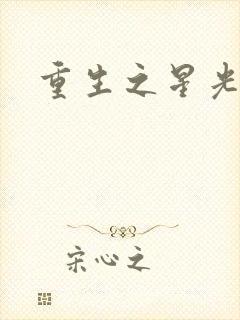 重生之星光
宋心之